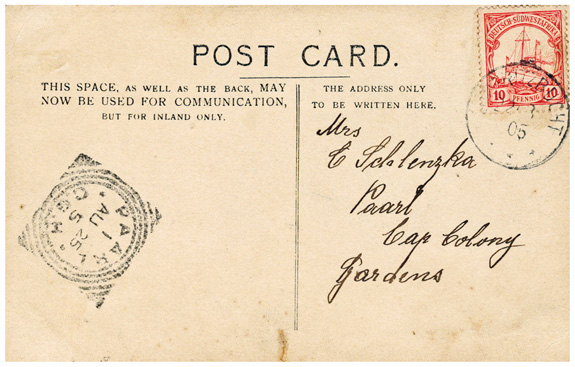 POST CARD.
THIS SPACE, AS WELL AS THE BACK, MAY
NOW BE USED FOR COMMUNICATION,
BUT FOR INLAND ONLY.
THE ADDRESS ONLY
TO BE WRITTEN HERE.
Mrs
C Schlenzka
Paarl
Cap Colony
Gardens
DEUTSCH-SÜDWESTAFRIKA
10 PFENNIG 10
05
PAARL
AU 25
5
CGH